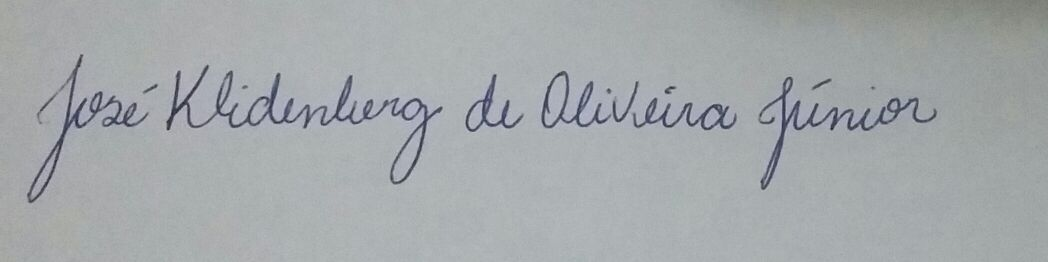 José Klidenberg de Oliveira Júnior